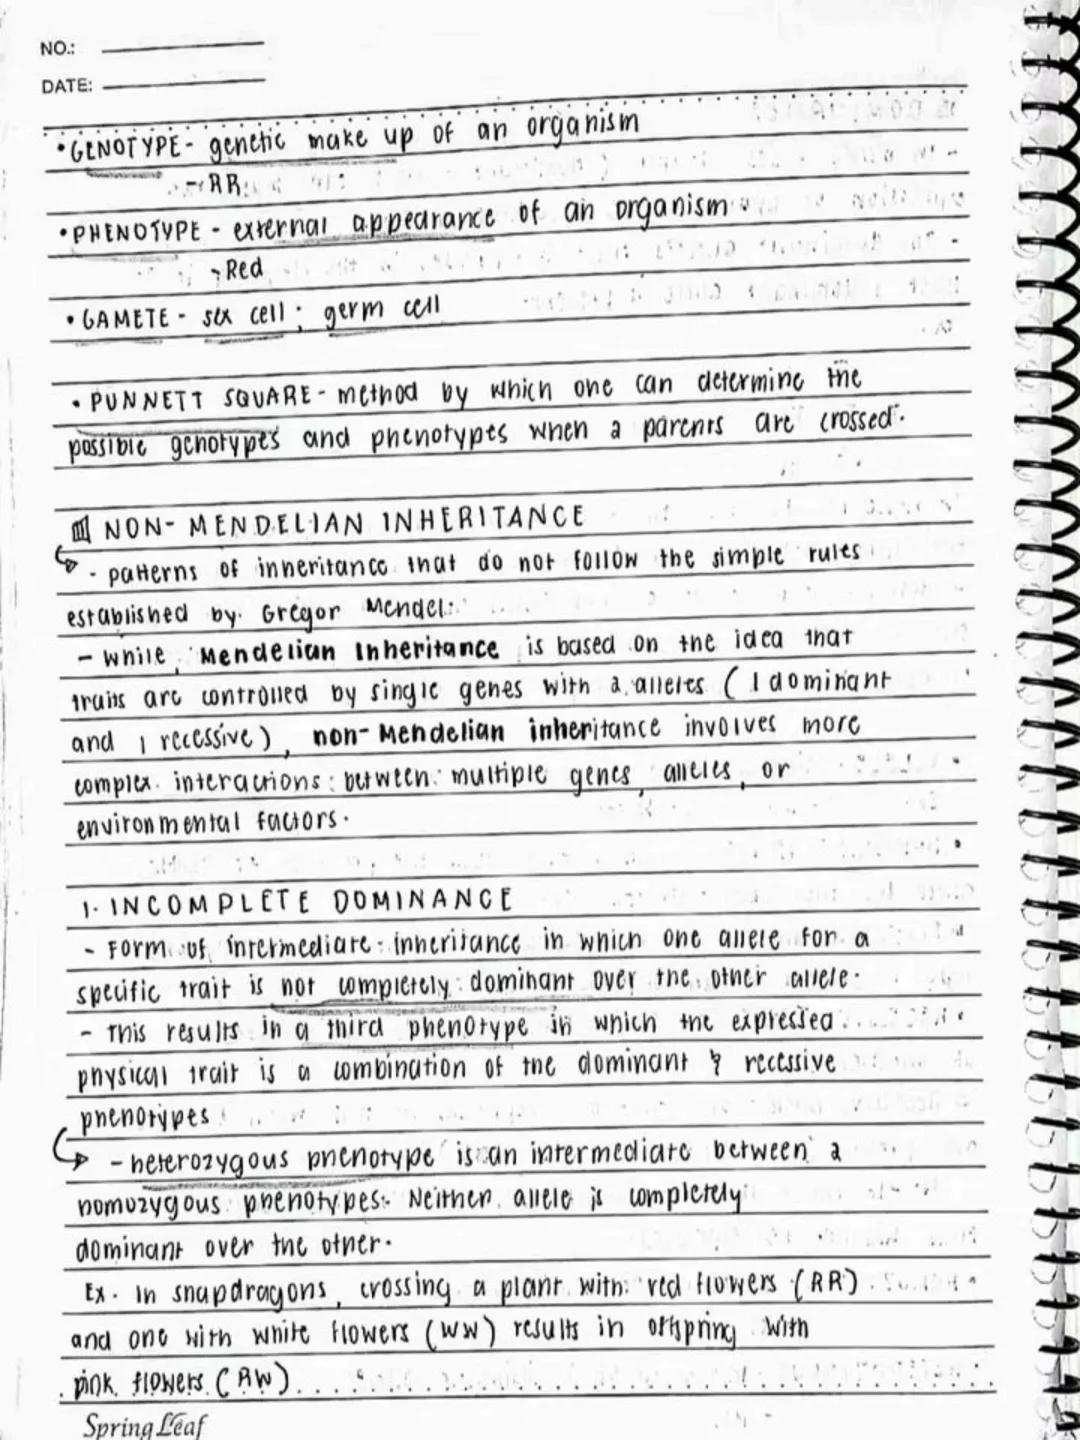 NO.:
DATE:
• GENOTYPE - genetic make up of an organism
- RR
• PHENOTYPE - external appearance of an organism
- Red
• GAMETE - sex cell ; germ cell
• PUNNETT SQUARE - method by which one can determine the
possible genotypes and phenotypes when 2 parents are crossed.
NON- MENDELIAN INHERITANCE
- patterns of inheritance that do not follow the simple rules
established by Gregor Mendel.
- While, Mendelian Inheritance is based on the idea that
traits are controlled by single genes with 2 alleles ( 1 dominant
and 1 recessive ), non- Mendelian inheritance involves more
complex interactions between multiple genes, alleles, or
environmental factors.
1. INCOMPLETE DOMINANCE
- Form of intermediate inheritance in which one allele for a
specific trait is not completely dominant over the other allele.
- This results in a third phenotype in which the expressed
physical trait is a combination of the dominant & recessive
phenotypes
- heterozygous phenotype is an intermediate between 2
homozygous phenotypes. Neither allele is completely
dominant over the other.
Ex. In snapdragons, crossing a plant with red flowers (RR)
and one with white flowers (WW) results in offspring with
pink flowers (RW).
Spring Leaf